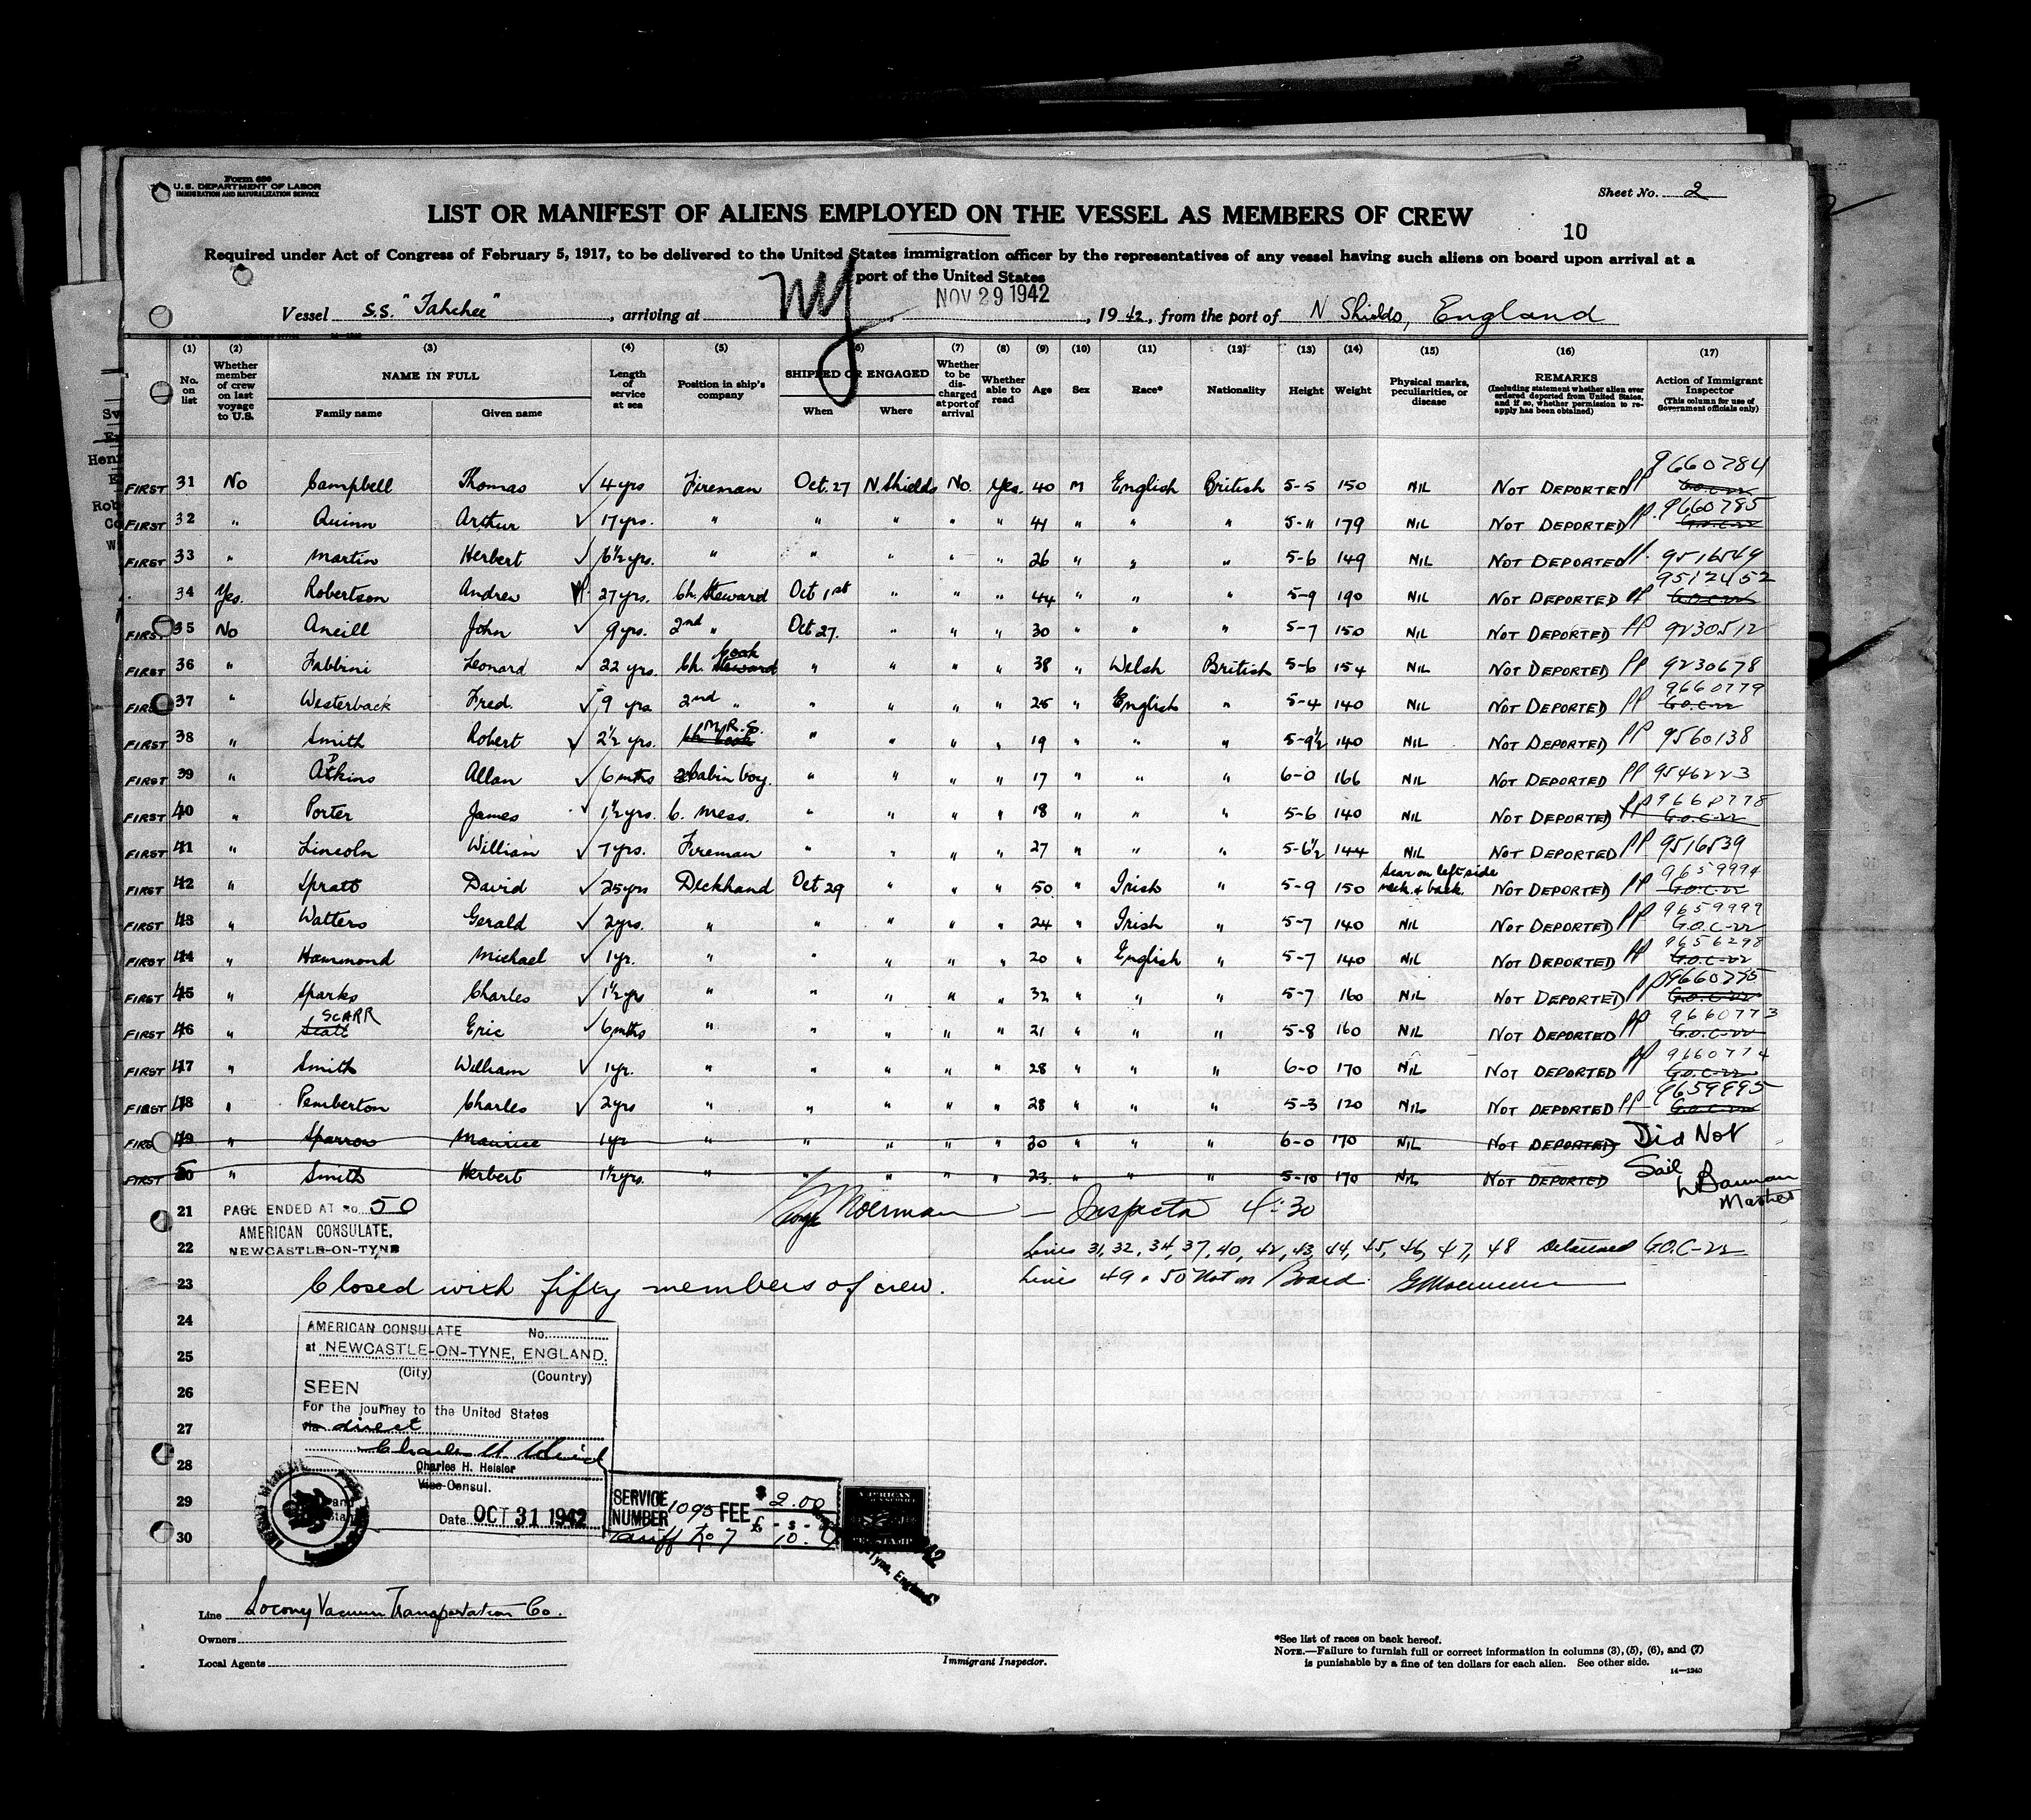 Form 680
U.S. DEPARTMENT OF LABOR
IMMIGRATION AND NATURALIZATION SERVICE
Sheet No. 2
LIST OR MANIFEST OF ALIENS EMPLOYED ON THE VESSEL AS MEMBERS OF CREW
10
Required under Act of Congress of February 5, 1917, to be delivered to the United States immigration officer by the representatives of any vessel having such aliens on board upon arrival at a
port of the United States
Vessel S.S. "Tahchee", arriving at NY NOV 29 1942, 1942, from the port of N Shields, England
(1) (2) (3) (4) (5) (6) (7) (8) (9) (10) (11) (12) (13) (14) (15) (16) (17)
No. on list Whether member of crew on last voyage to U.S. NAME IN FULL Family name Given name Length of service at sea Position in ship's company SHIPPED OR ENGAGED When Where Whether to be discharged at port of arrival Whether able to read Age Sex Race* Nationality Height Weight Physical marks, peculiarities, or disease REMARKS (Including statement whether alien ever ordered deported from United States, and if so, whether permission to reapply has been obtained) Action of Immigrant Inspector (This column for use of Government officials only)
FIRST 31 No Campbell Thomas ✓ 4 yrs Fireman Oct. 27 N. Shields No. Yes. 40 M English British 5-5 150 NIL NOT DEPORTED PP 9660784 G.O.C-22
FIRST 32 " Quinn Arthur ✓ 17 yrs. " " " " " 41 " " " 5-11 179 NIL NOT DEPORTED PP. 9660785 G.O.C-22
FIRST 33 " Martin Herbert ✓ 6½ yrs. " " " " " 26 " " " 5-6 149 NIL NOT DEPORTED 9516549
34 Yes. Robertson Andrew 27 yrs. Ch. Steward Oct 1st " " " 44 " " " 5-9 190 NIL NOT DEPORTED PP 9512452 G.O.C-22
FIRST 35 No Aneill John ✓ 9 yrs. 2nd " Oct 27. " " " 30 " " " 5-7 150 NIL NOT DEPORTED PP 9230512
FIRST 36 " Fabbini Leonard ✓ 22 yrs. Ch. Steward Cook " " " " 38 " Welsh British 5-6 154 NIL NOT DEPORTED PP 9230678
FIRST 37 " Westerback Fred. ✓ 9 yrs 2nd " " " " " 25 " English " 5-4 140 NIL NOT DEPORTED PP 9660779 G.O.C-22
FIRST 38 " Smith Robert ✓ 2½ yrs. M.R.S. " " " " 19 " " " 5-9½ 140 NIL NOT DEPORTED PP 9560138
FIRST 39 " Atkins Allan ✓ 6 mths Cabin boy. " " " " 17 " " " 6-0 166 NIL NOT DEPORTED PP 9546223
FIRST 40 " Porter James ✓ 1½ yrs. C. Mess. " " " " 18 " " " 5-6 140 NIL NOT DEPORTED PP 9660778 G.O.C-22
FIRST 41 " Lincoln William ✓ 7 yrs. Fireman " " " " 27 " " " 5-6½ 144 NIL NOT DEPORTED PP 9516539
FIRST 42 " Spratt David ✓ 25 yrs Deckhand Oct 29 " " " 50 " Irish " 5-9 150 Scar on left side neck & back. NOT DEPORTED PP 9659994 G.O.C-22
FIRST 43 " Watters Gerald ✓ 2 yrs. " " " " " 24 " Irish " 5-7 140 NIL NOT DEPORTED PP 9659999 G.O.C-22
FIRST 44 " Hammond Michael ✓ 1 yr. " " " " " 20 " English " 5-7 140 NIL NOT DEPORTED PP 9656298 G.O.C-22
FIRST 45 " Sparks Charles ✓ 1½ yrs " " " " " 32 " " " 5-7 160 NIL NOT DEPORTED PP 9660775 G.O.C-22
FIRST 46 " Scatt SCARR Eric ✓ 6 mths " " " " " 21 " " " 5-8 160 NIL NOT DEPORTED PP 9660773 G.O.C-22
FIRST 47 " Smith William ✓ 1 yr. " " " " " 28 " " " 6-0 170 NIL NOT DEPORTED PP 9660774 G.O.C-22
FIRST 48 " Pemberton Charles ✓ 2 yrs " " " " " 28 " " " 5-3 120 NIL NOT DEPORTED PP 9659995 G.O.C-22
FIRST 49 " Sparrow Maurice 1 yr " " " " " 30 " " " 6-0 170 NIL NOT DEPORTED Did Not
FIRST 50 " Smith Herbert 1½ yrs. " " " " " 23 " " " 5-10 170 NIL NOT DEPORTED Sail
Master
21 PAGE ENDED AT No. 50 Moerman — Inspector 4:30
AMERICAN CONSULATE,
22 NEWCASTLE-ON-TYNE Lines 31, 32, 34, 37, 40, 42, 43, 44, 45, 46, 47, 48 Detained G.O.C-22
23 Closed with fifty members of crew. Lines 49 & 50 Not on Board. GMoerman
24 AMERICAN CONSULATE No.
25 at NEWCASTLE-ON-TYNE, ENGLAND.
(City) (Country)
26 SEEN
For the journey to the United States
27 via direct
28 Charles H. Heisler
Vice Consul.
29 Date OCT 31 1942
SERVICE NUMBER 1095 FEE $ 2.00
30 Tariff No 7 £ - s - d 10.
AMERICAN
Tyne, England
Line Socony Vacuum Transportation Co.
Owners
Local Agents
Immigrant Inspector.
*See list of races on back hereof.
NOTE.—Failure to furnish full or correct information in columns (3), (5), (6), and (7)
is punishable by a fine of ten dollars for each alien. See other side.
14—1240